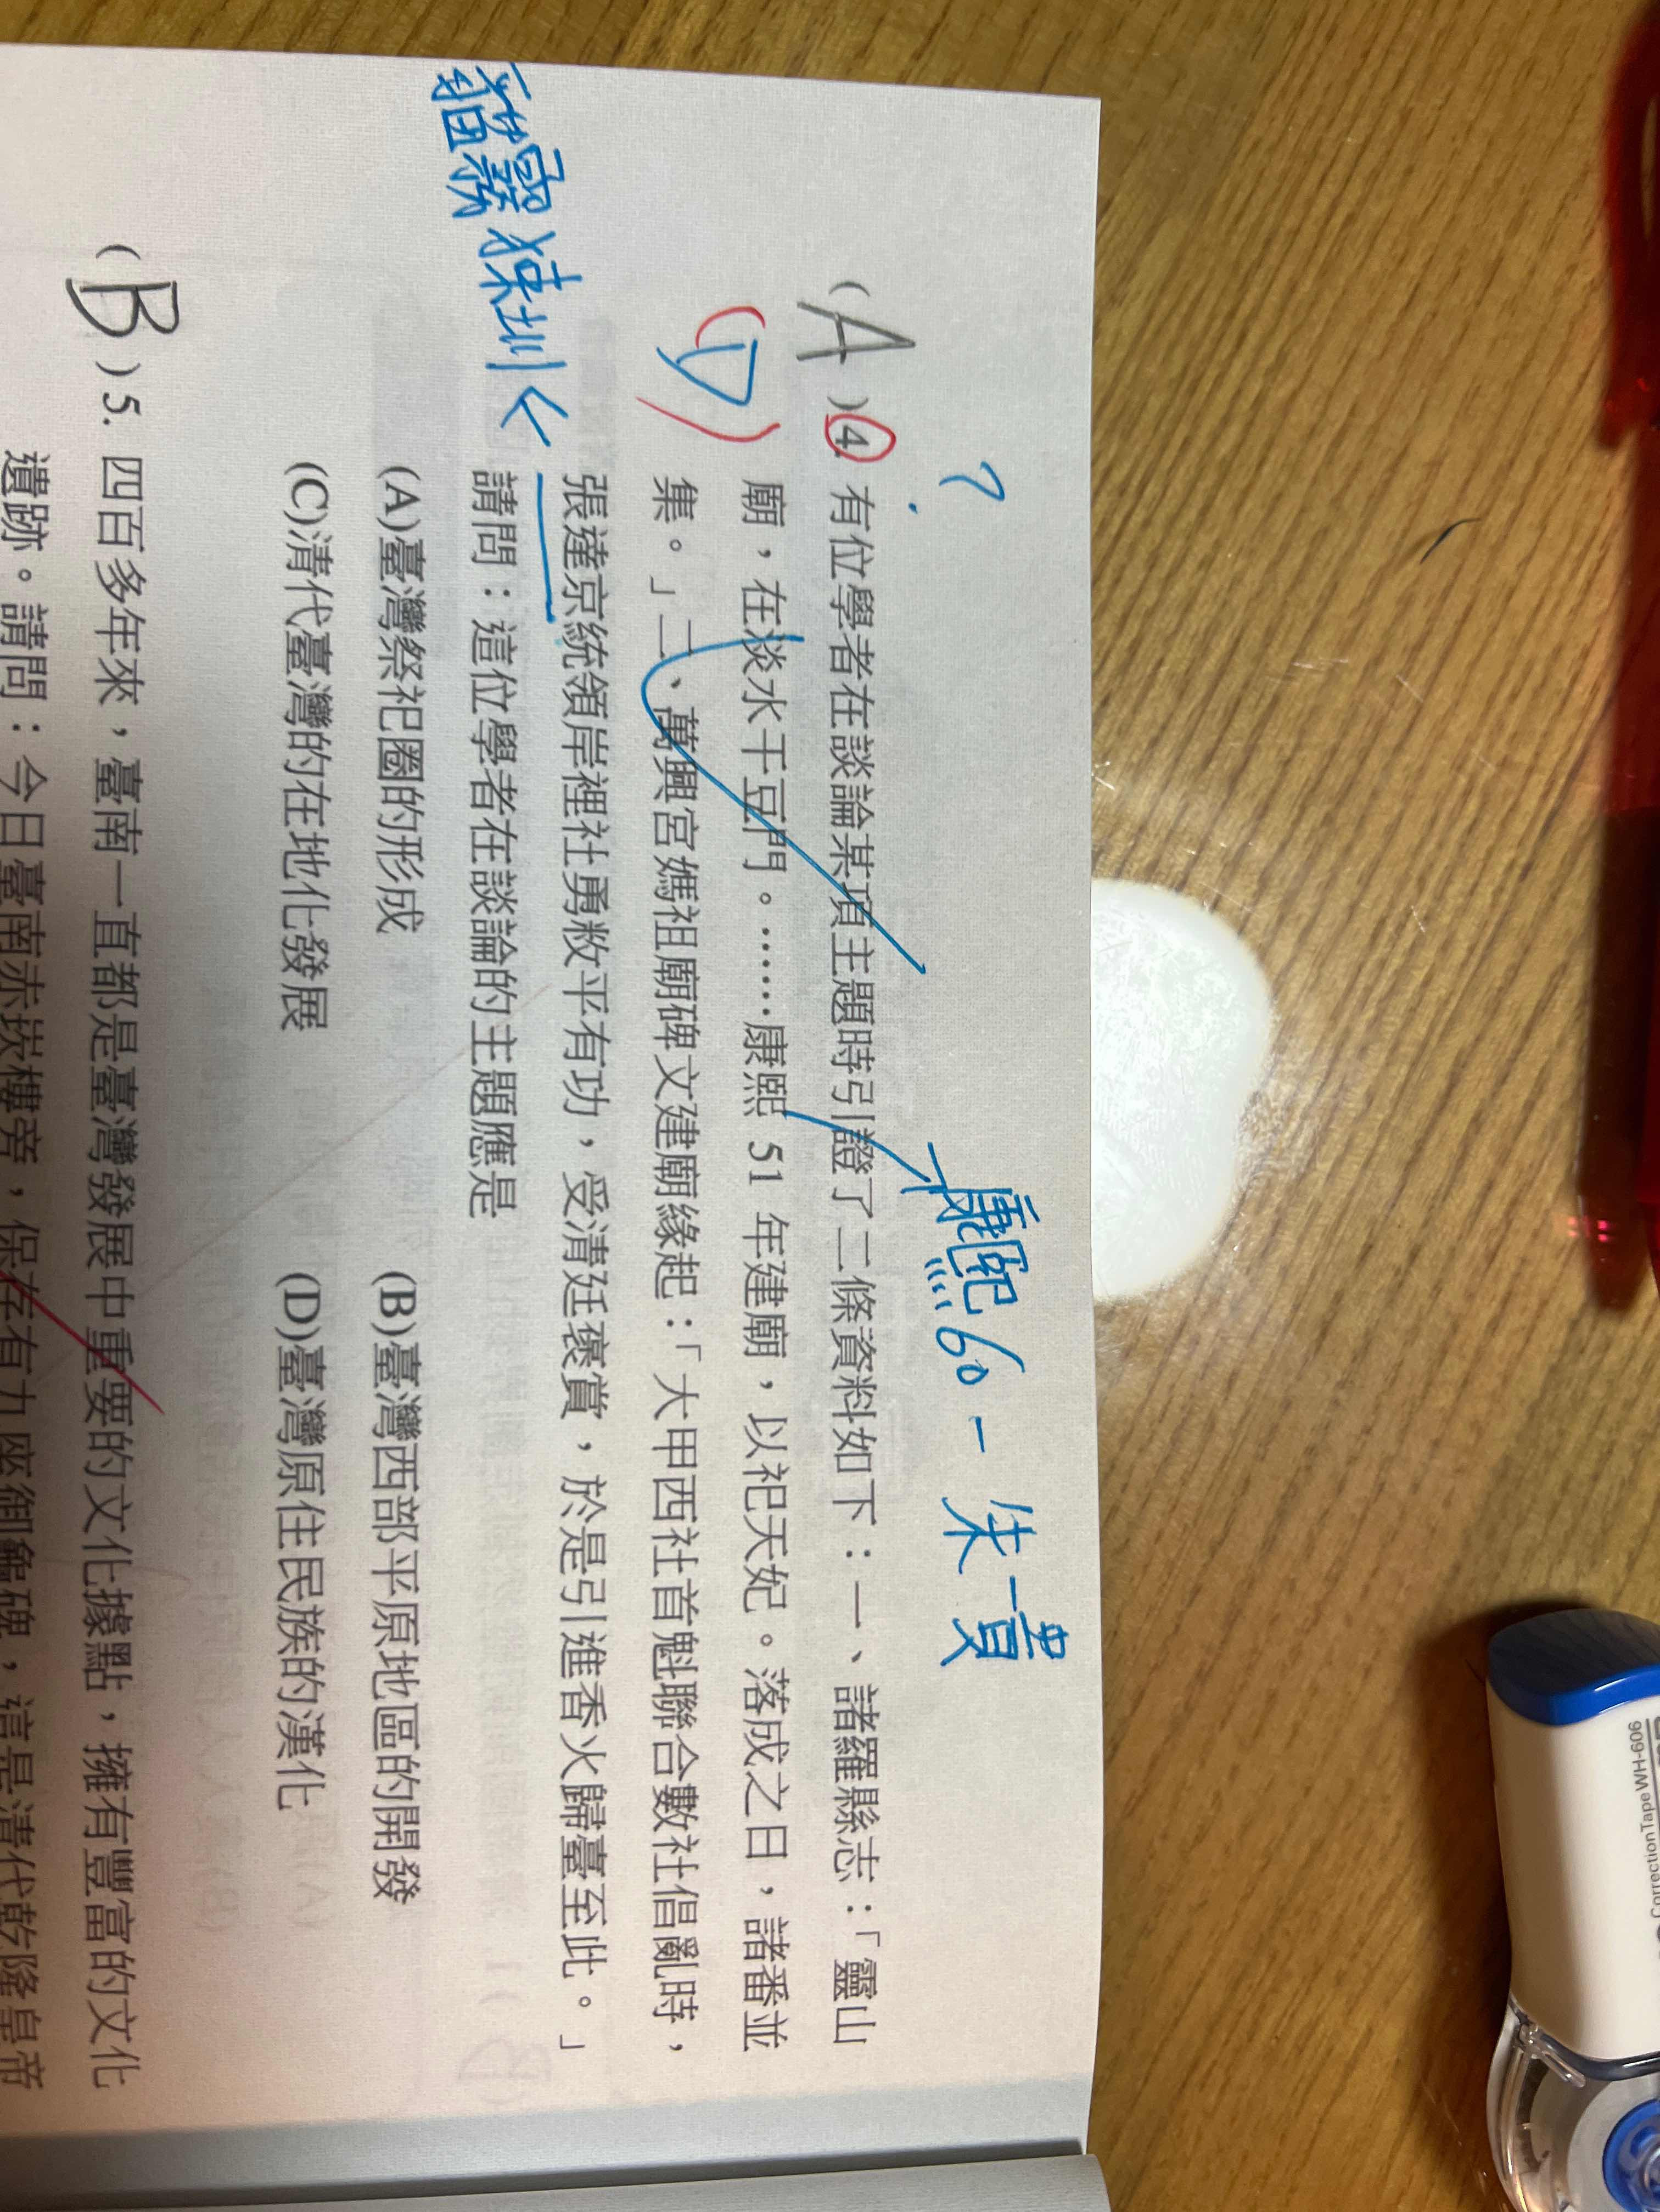 康熙60-朱一貴
?
(A)4. 有位學者在談論某項主題時引證了二條資料如下：一、諸羅縣志：「靈山
(D)
廟，在淡水干豆門。……康熙 51 年建廟，以祀天妃。落成之日，諸番並
集。」二、萬興宮媽祖廟碑文建廟緣起：「大甲西社首魁聯合數社倡亂時，
張達京統領岸裡社勇敉平有功，受清廷褒賞，於是引進香火歸臺至此。」
貓霧捒圳
請問：這位學者在談論的主題應是
(A)臺灣祭祀圈的形成 (B)臺灣西部平原地區的開發
(C)清代臺灣的在地化發展 (D)臺灣原住民族的漢化
(B)5. 四百多年來，臺南一直都是臺灣發展中重要的文化據點，擁有豐富的文化
遺跡。請問：今日臺南赤崁樓旁，保存有九座御龜碑，這是清代乾隆皇帝
Correction Tape WH-606